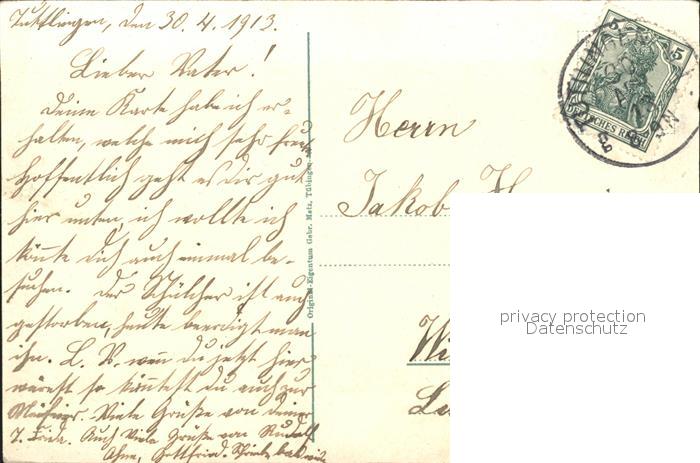 Tuttlingen, den 30. 4. 1913.
Lieber Vater!
Deine Karte habe ich er-
halten, welche mich sehr freut
Hoffentlich geht es dir gut
hier unten, ich wollte ich
könnte dich auch einmal be-
suchen. Der Schülcher ist auch
gestorben, heute beerdigt man
ihn. L. V. wenn du jetzt hier
wärest so könntest du auch zur
Viele Grüße von deiner
T. Frida. Auch Viele Grüße von Rudolf
Gottfried. Schreibe bald wieder
Original-Eigentum Gebr. Metz, Tübingen
Herrn
Jakob H
Wi
5 5
DEUTSCHES REICH
privacy protection
Datenschutz